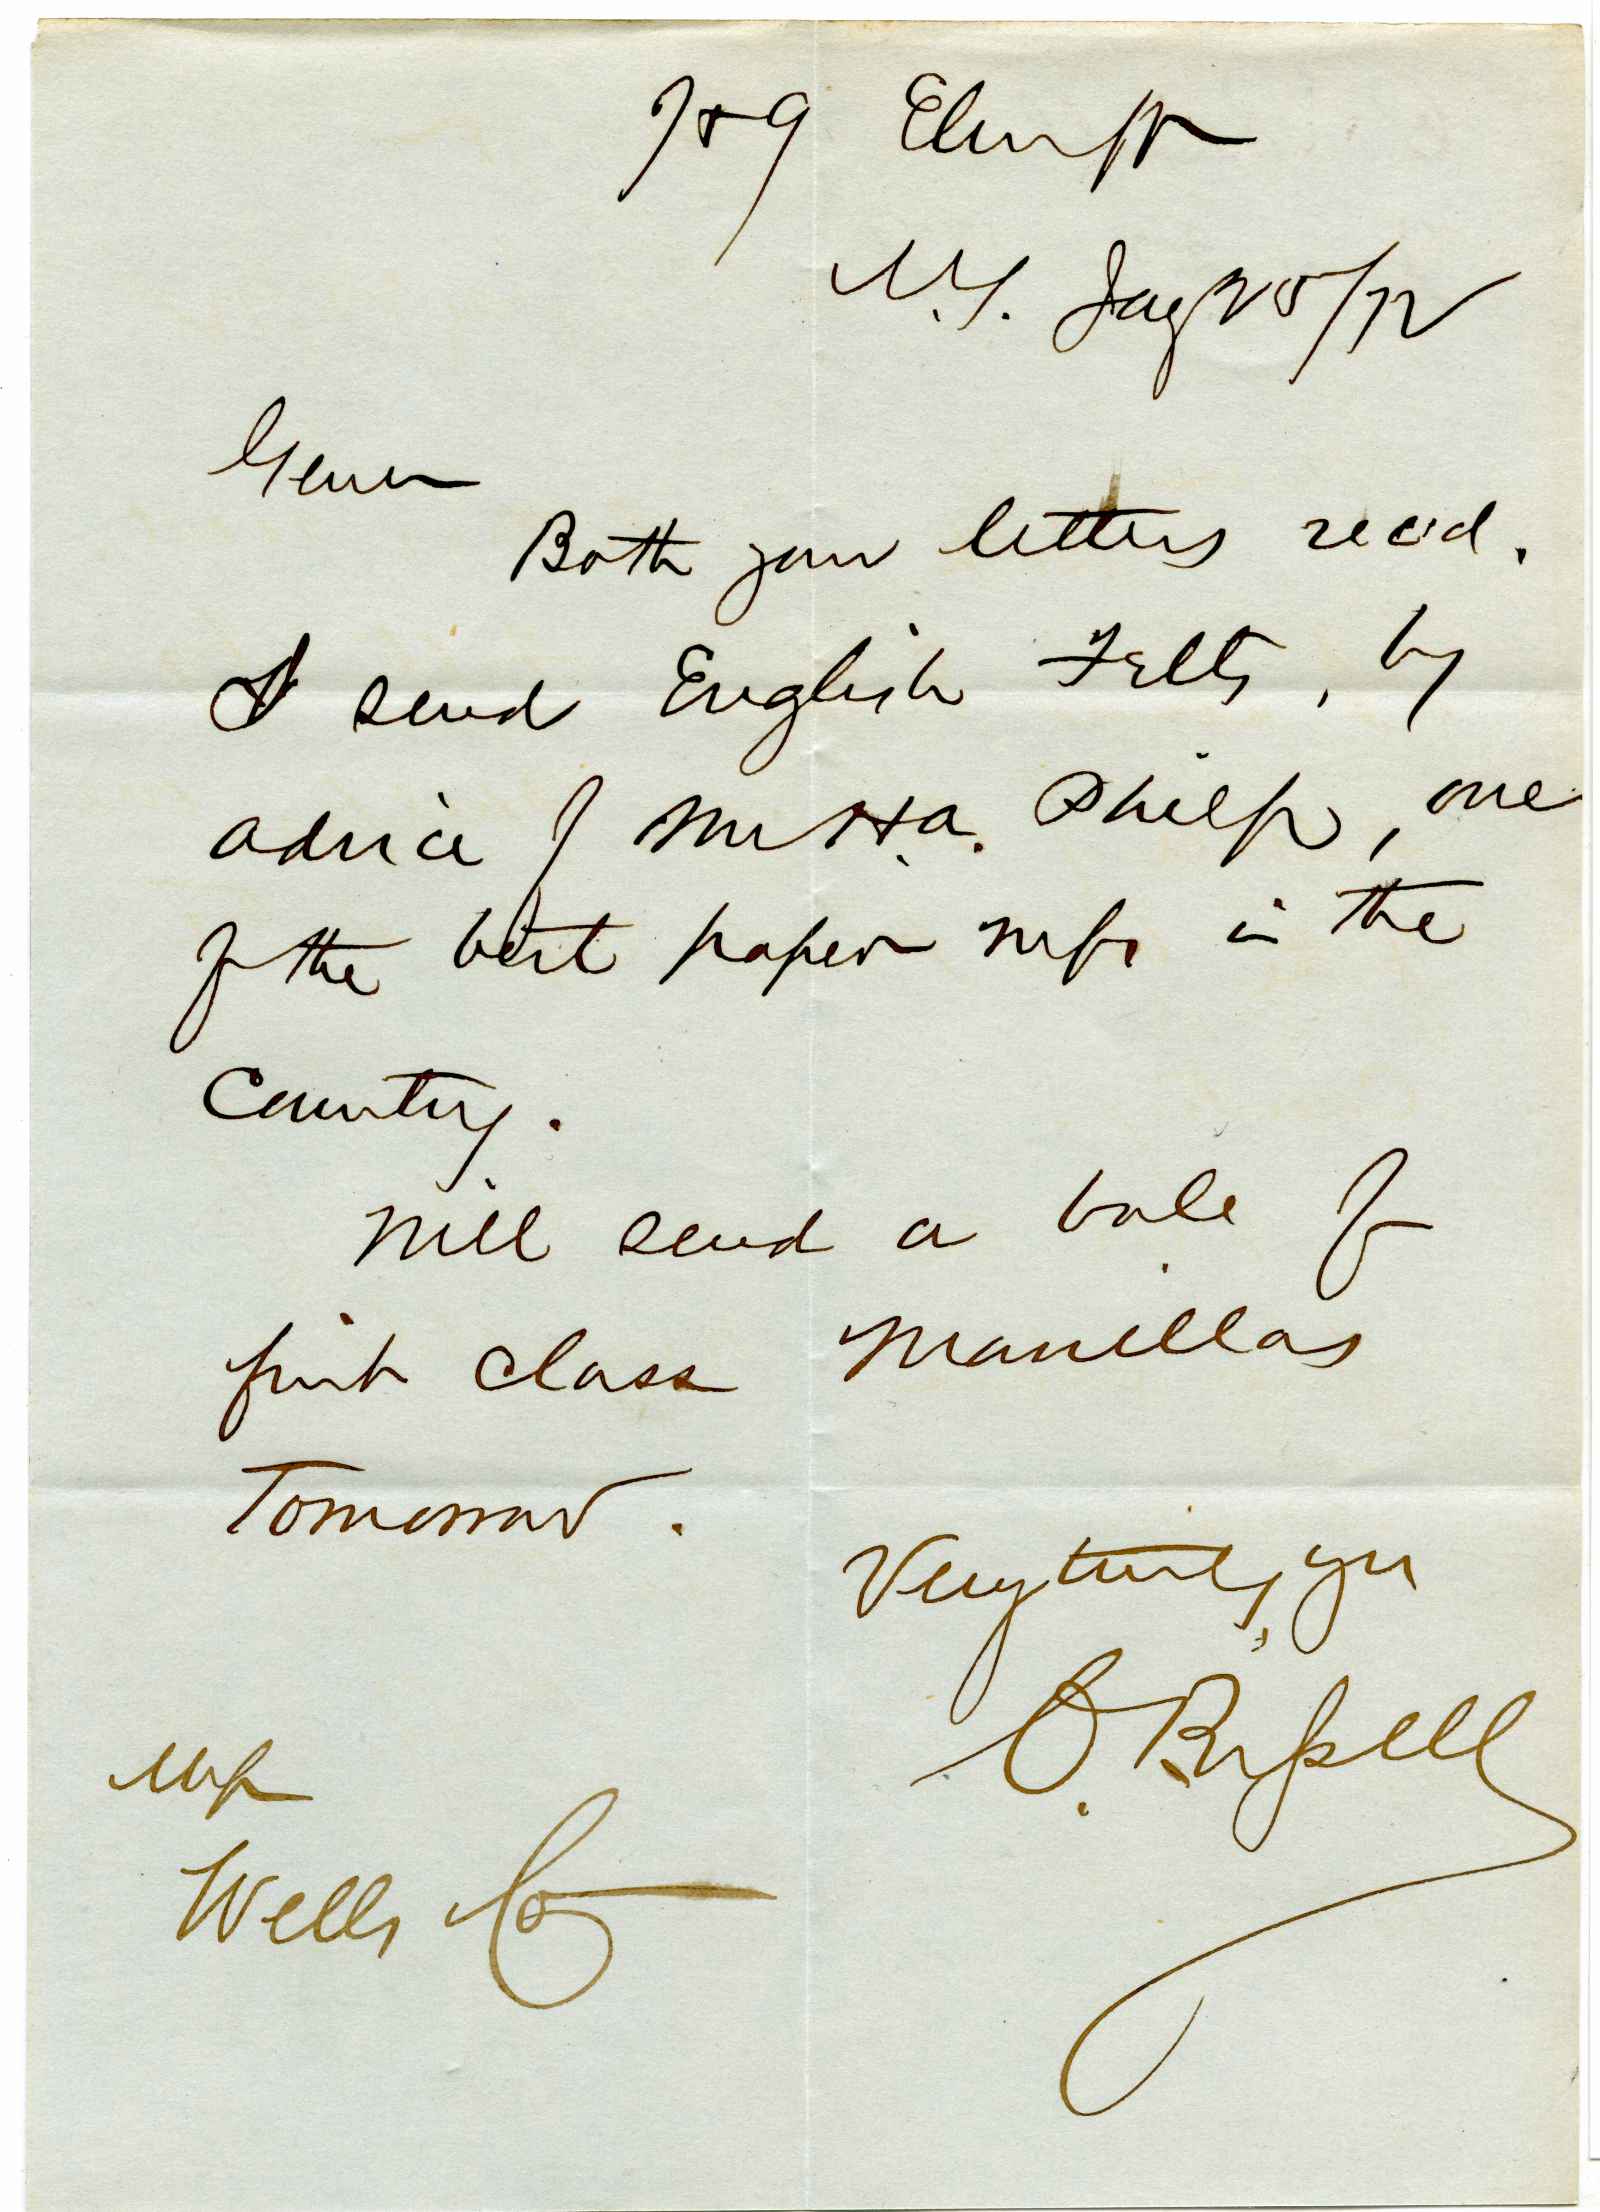 7 & 9 Elm St
N.Y. Jay 25/72
Gen
Both your letters recd.
I send English Felts, by
advice of Mr H.A. Philp, one
of the best paper mfrs in the
Country.
Will send a bale of
first class Manillas
Tomorrow.
Very truly, yrs
O. Bissell
Wells Co